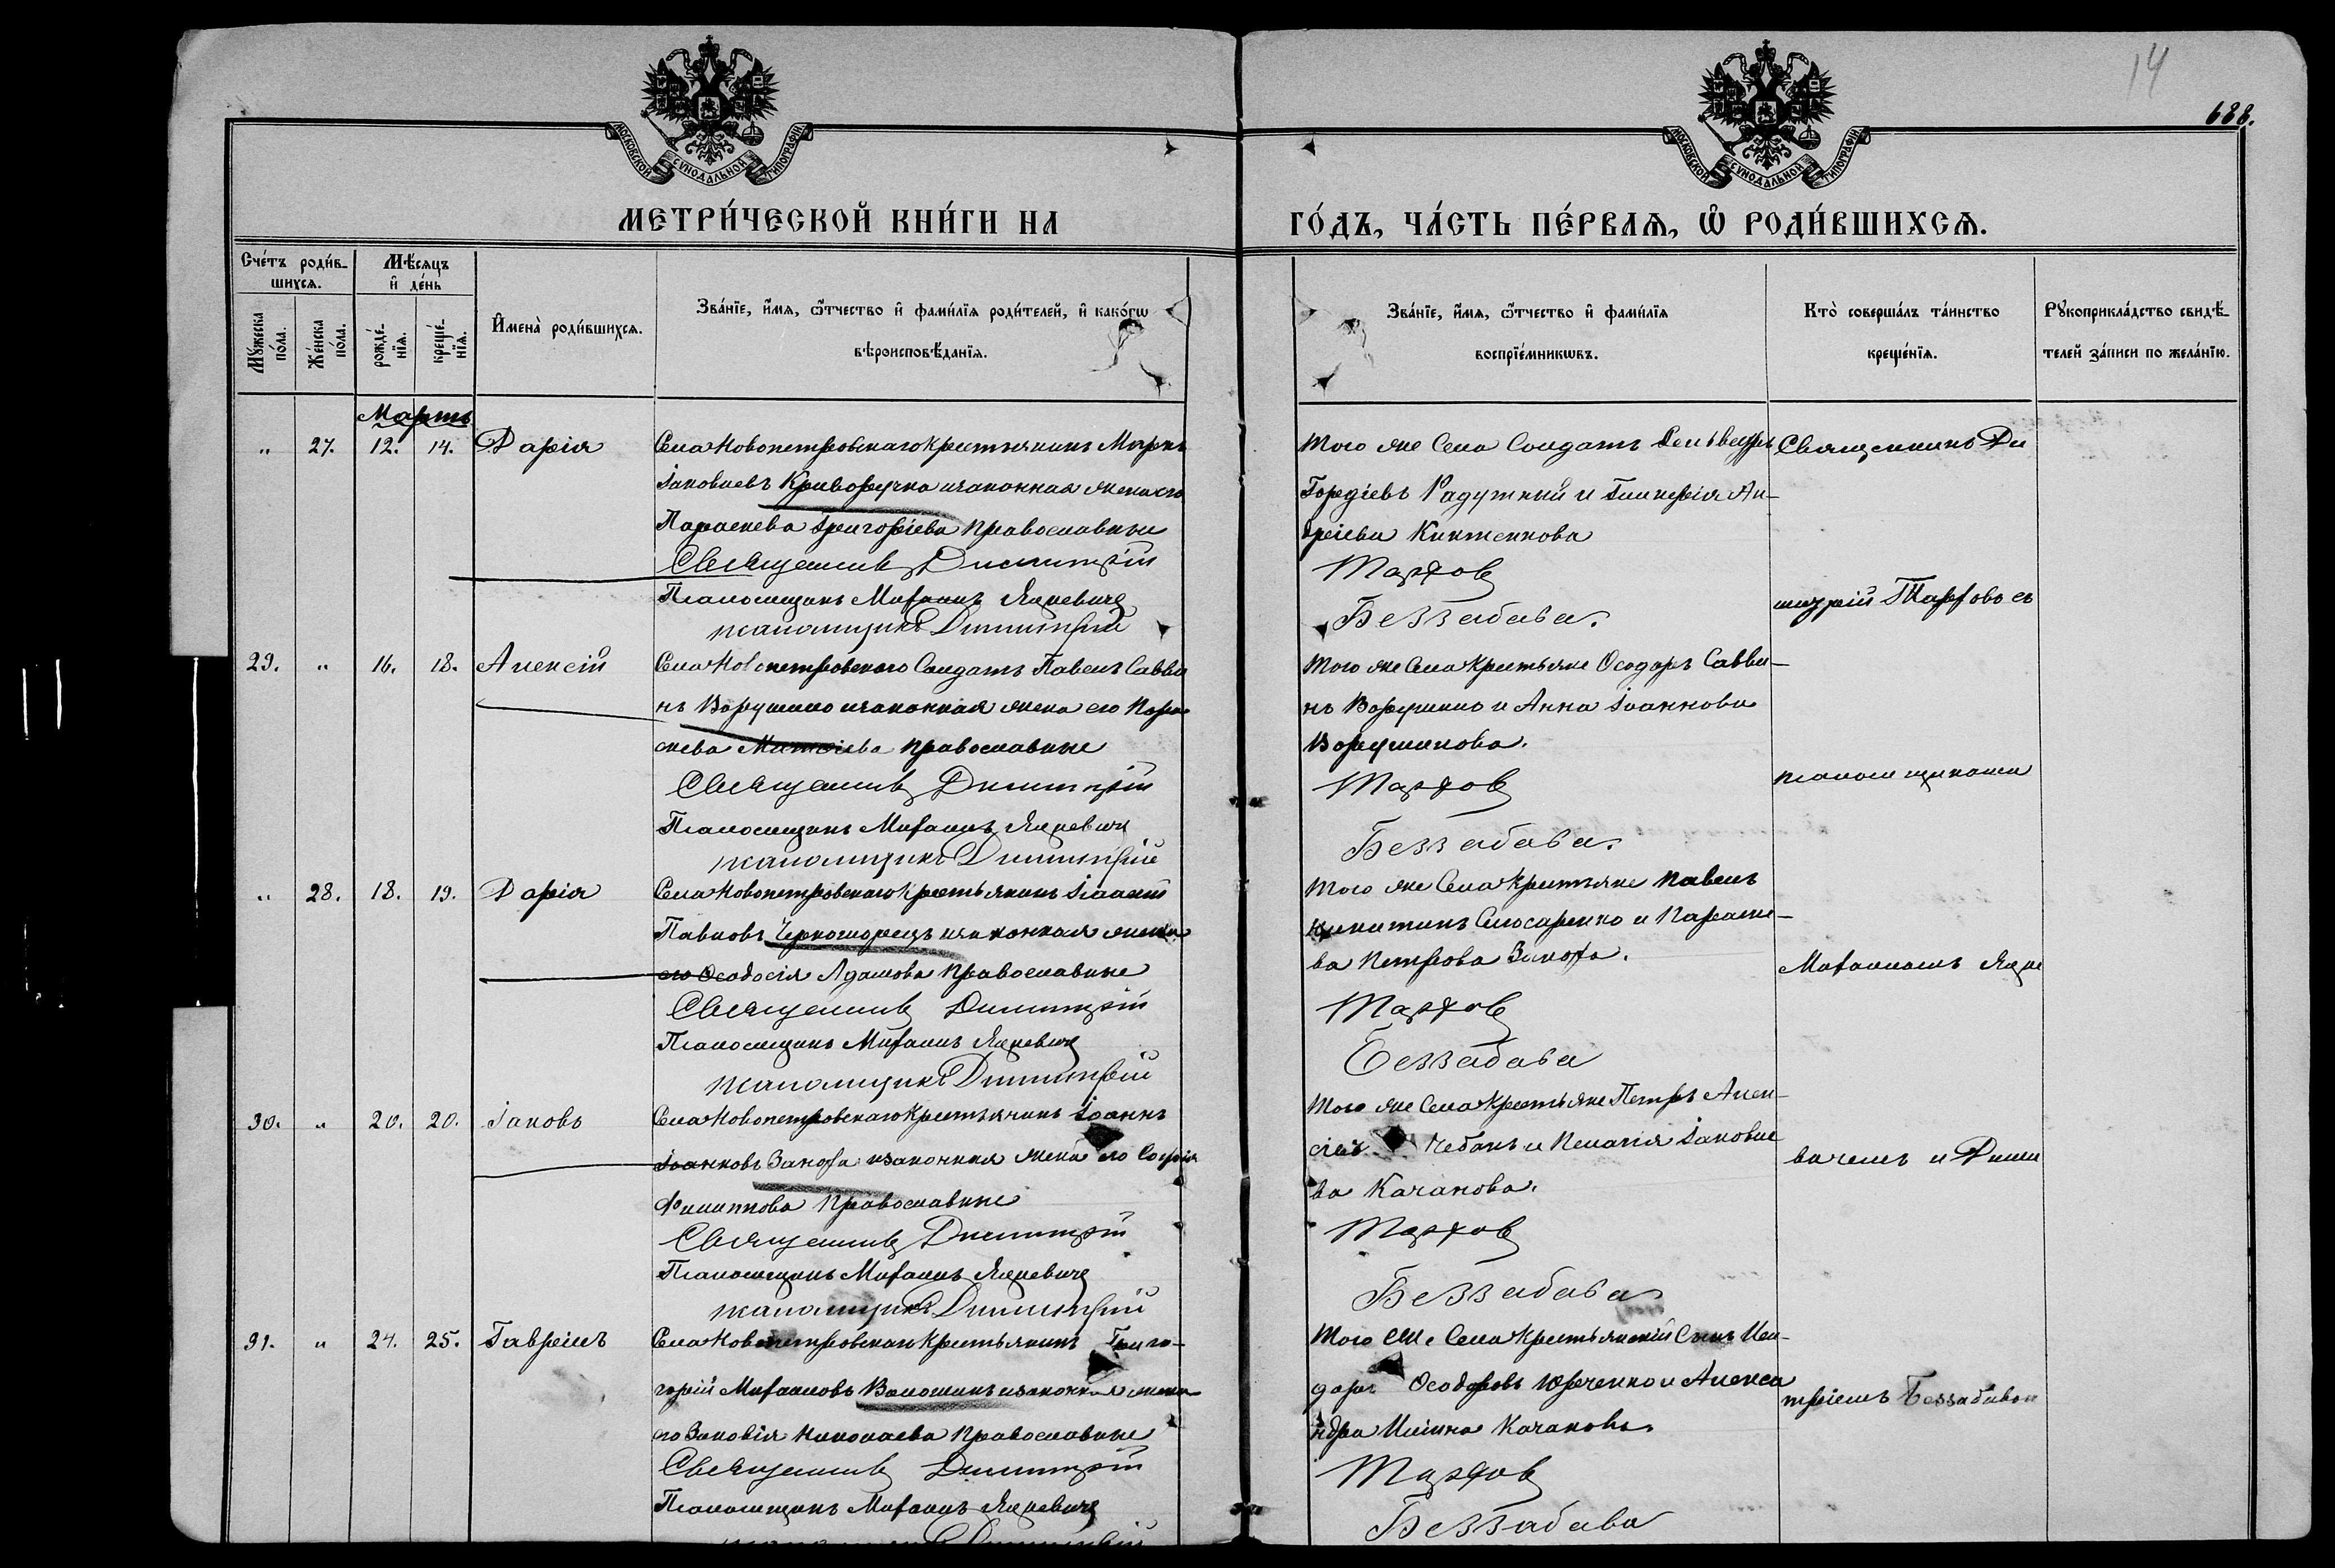 14
688.
МОСКОВСКОЙ СѴНОДАЛЬНОЙ ТИПОГРАФІИ
МОСКОВСКОЙ СѴНОДАЛЬНОЙ ТИПОГРАФІИ
МЕТРИ́ЧЕСКОЙ КНИ́ГИ НА
ГО́ДЪ, ЧА́СТЬ ПЕ́РВАѦ, Ѡ҆ РОДИ́ВШИХСѦ.
Сче́тъ роди́в-
шихсѧ.
Мѣ́сѧцъ
и҆ де́нь
Мꙋ́жеска
по́ла.
Же́нска
по́ла.
рожде́-
нїѧ.
креще́-
нїѧ.
И҆мена̀ роди́вшихсѧ.
Зва́нїе, и҆́мѧ, ѻ҆́тчество и҆ фами́лїѧ роди́телей, и҆ како́гѡ
вѣроисповѣ́данїѧ.
Зва́нїе, и҆́мѧ, ѻ҆́тчество и҆ фами́лїѧ
воспрїе́мникѡвъ.
Кто̀ соверша́лъ та́инство
креще́нїѧ.
Рꙋкоприкла́дство свидѣ́-
телей за́писи по жела́нїю.
Мартъ
" 27. 12. 14. Дарія
Села Новопетровскаго крестьянинъ Маркъ
Іаковлевъ Криворучко и законная жена его
Параскева Григоріева православные
Священникъ Димитрій
Псаломщикъ Михаилъ Яцкевичъ
псаломщикъ Димитрій
Того же Села Солдатъ
Гордіевъ Радужный и Гликерія Ан-
дреіева
Тарховъ
Беззабава.
Священникъ Ди
митрій Тарховъ съ
29. " 16. 18. Алексій
Села Новопетровскаго Солдатъ Павелъ Савви
нъ Ворушило и законная жена его Пара
скева православные
Священникъ Димитрій
Псаломщикъ Михаилъ Яцкевичъ
псаломщикъ Димитрій
Того же Села крестьяне Ѳеодоръ Савви-
нъ Ворушило и Анна Іоаннова
Ворушилова.
Тарховъ
Беззабава.
псаломщиками
" 28. 18. 19. Дарія
Села Новопетровскаго крестьянинъ Іоаннъ
Павловъ Черноморецъ и законная жена
его Ѳеодосія Адамова православные
Священникъ Димитрій
Псаломщикъ Михаилъ Яцкевичъ
псаломщикъ Димитрій
Того же Села крестьяне Павелъ
Никитинъ Слюсаренко и Параске-
ва Петрова
Тарховъ
Беззабава
Михаиломъ Яцке
30. " 20. 20. Іаковъ
Села Новопетровскаго крестьянинъ Іоаннъ
Іоанновъ и законная жена его Софія
Филиппова православные
Священникъ Димитрій
Псаломщикъ Михаилъ Яцкевичъ
псаломщикъ Димитрій
Того же Села крестьяне Петръ Алек-
сіевъ Чебанъ и Пелагія Іаковле
ва Качанова.
Тарховъ
Беззабава
вичемъ и Дими
31. " 24. 25. Гавріилъ
Села Новопетровскаго крестьянинъ Григо-
горій Михаиловъ Волошинъ и законная жена
его Зиновія Николаева православные
Священникъ Димитрій
Псаломщикъ Михаилъ Яцкевичъ
Того же Села крестьянскій Сынъ Иси-
доръ Ѳеодоровъ Юрченко и Алекса
ндра Иліина Качанова.
Тарховъ
Беззабава
тріемъ Беззабавою